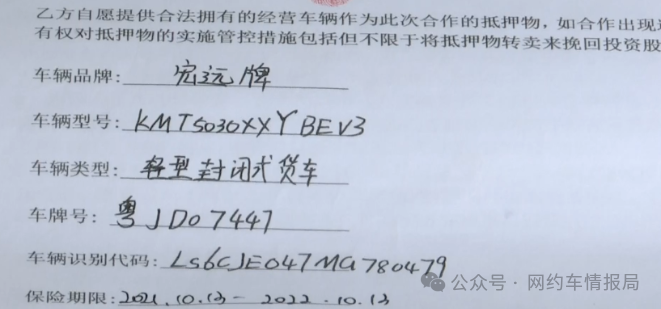 乙方自愿提供合法拥有的经营车辆作为此次合作的抵押物，如合作出现
有权对抵押物的实施管控措施包括但不限于将抵押物转卖来挽回投资股
车辆品牌：宏远牌
车辆型号：KMT5030XXYBEV3
车辆类型：轻型封闭式货车
车牌号：粤JD07447
车辆识别代码：LS6CJE047MA780479
保险期限：2021.10.13－2022.10.13
公众号·网约车情报局